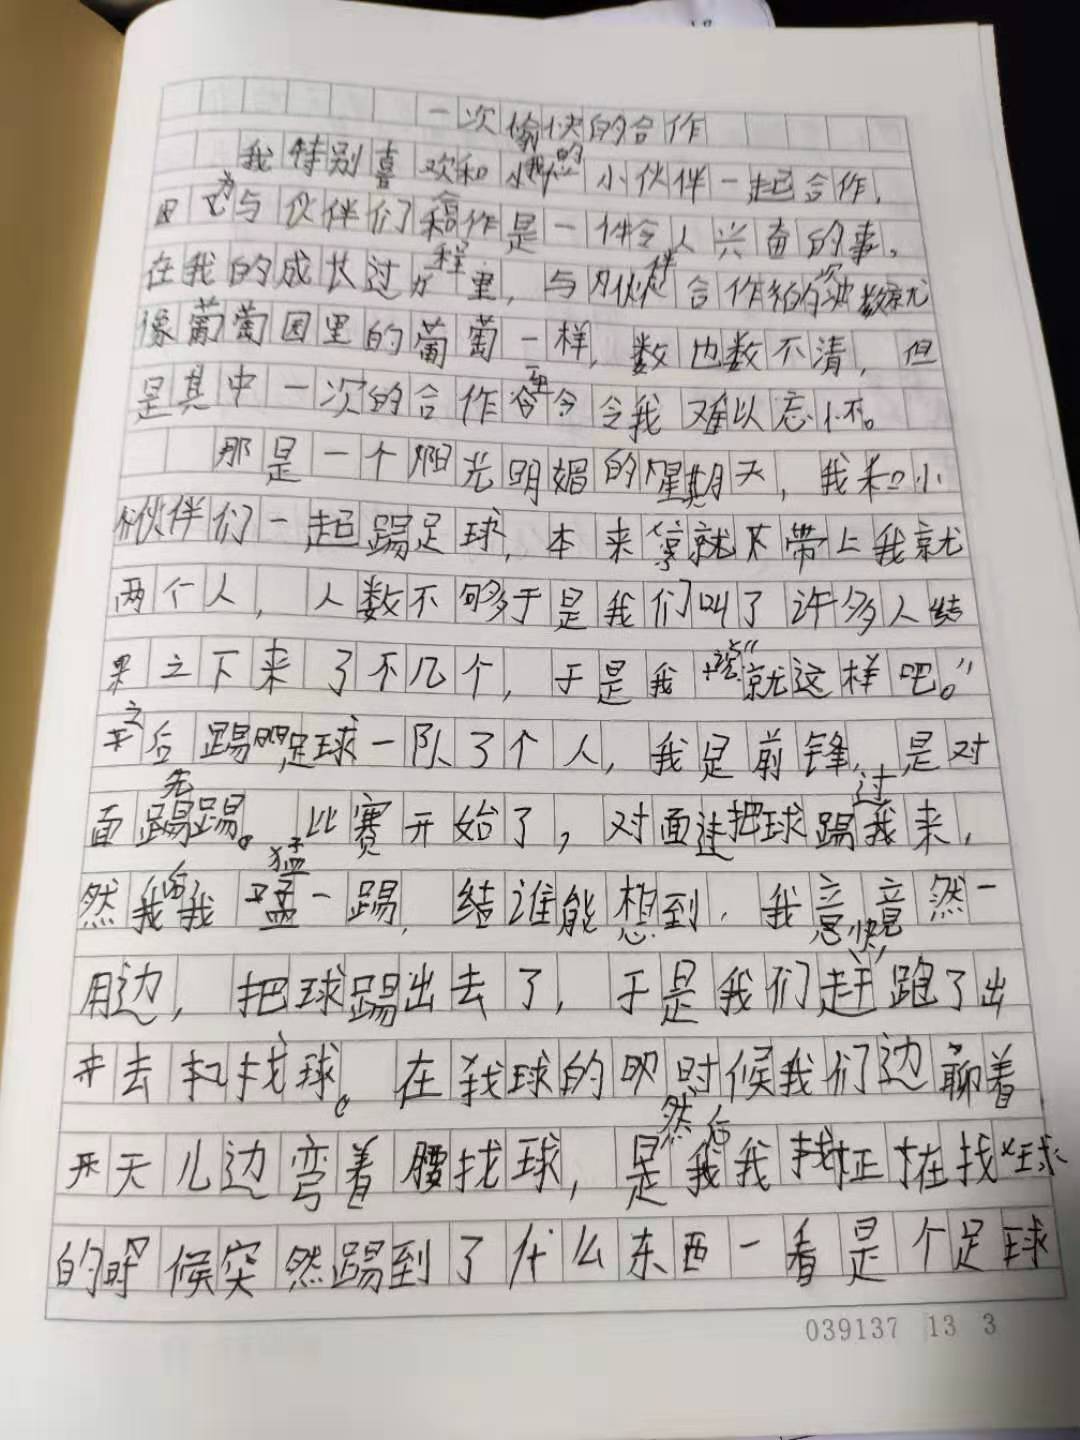 一次愉快的合作
我特别喜欢和我的小伙伴一起合作,
因为与伙伴们合作是一件令人兴奋的事。
在我的成长过程里,与小伙伴合作的次数就
像葡萄园里的葡萄一样,数也数不清,但
是其中一次的合作令我难以忘怀。
那是一个阳光明媚的星期天,我和小
伙伴们一起踢足球,本来就带上我就
两个人,人数不够于是我们叫了许多人结
果之下来了不几个,于是我说“就这样吧。”
之后踢足球一队了个人,我是前锋,是对
面先踢。比赛开始了,对面把球踢过来,
然后我猛一踢,结谁能想到,我竟然一
用边,把球踢出去了,于是我们赶快跑了出
去找球。在找球的时候我们边聊着
天儿边弯着腰找球,然后我正在找球
的时候突然踢到了什么东西一看是个足球
039137 13 3